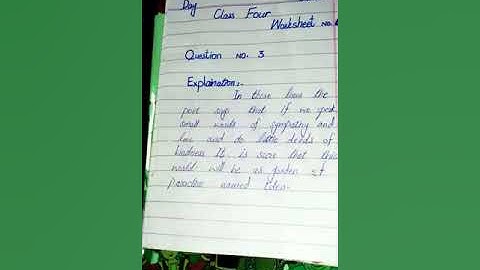 Day
Class Four
Worksheet No.
Question No. 3
Explaination:-
In these lines the
poet says that if we speak
small words of sympathy and
love and to little deeds of
kindness It is sure that this
world will be as garden of
Paradise named Eden.